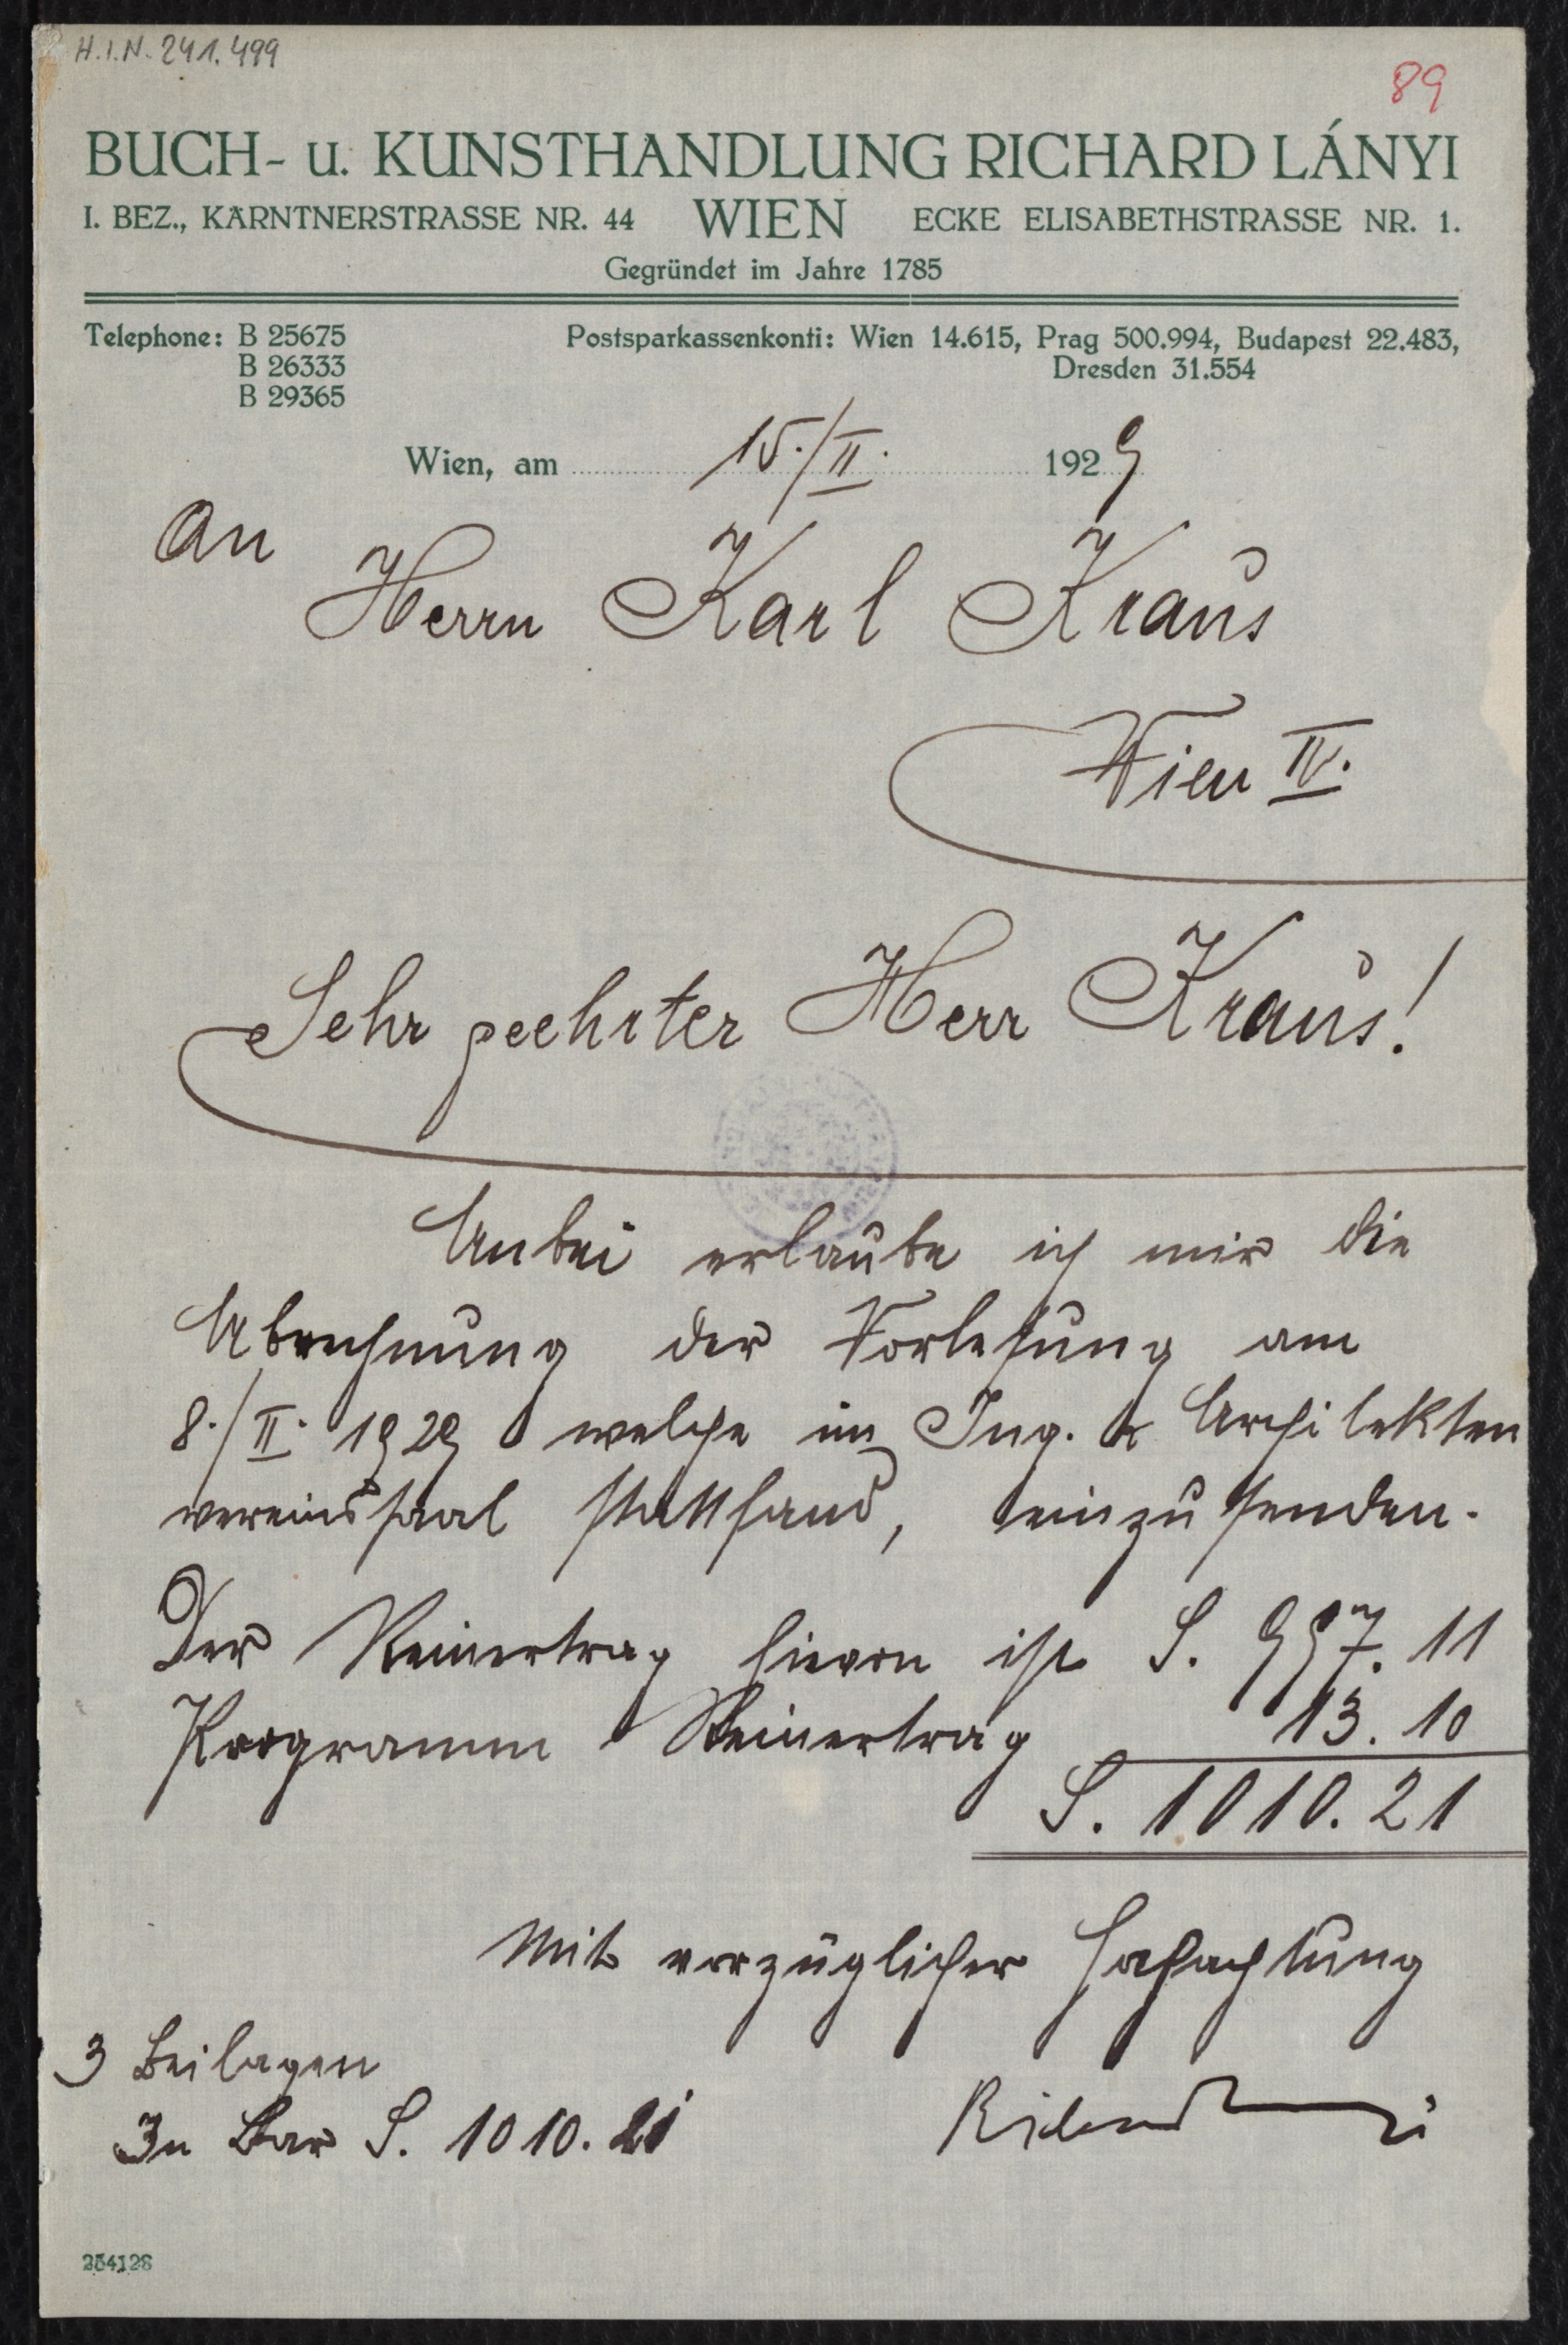 H.I.N. 241.499
89
BUCH- u. KUNSTHANDLUNG RICHARD LÁNYI
I. BEZ., KÄRNTNERSTRASSE NR. 44 WIEN ECKE ELISABETHSTRASSE NR. 1.
Gegründet im Jahre 1785
Telephone: B 25675 Postsparkassenkonti: Wien 14.615, Prag 500.994, Budapest 22.483,
B 26333 Dresden 31.554
B 29365
Wien, am 15./II. 1929
An
Herrn Karl Kraus
Wien IV.
Sehr geehrter Herr Kraus!
Anbei erlaube ich mir die
Abrechnung der Vorlesung am
8./II. 1929 welche im Ing. & Architekten
vereinssaal stattfand, einzusenden.
Der Reinertrag hievon ist S. 997.11
Programm Reinertrag 13.10
S. 1010.21
Mit vorzüglicher Hochachtung
3 Beilagen
In Bar S. 1010.21
254128